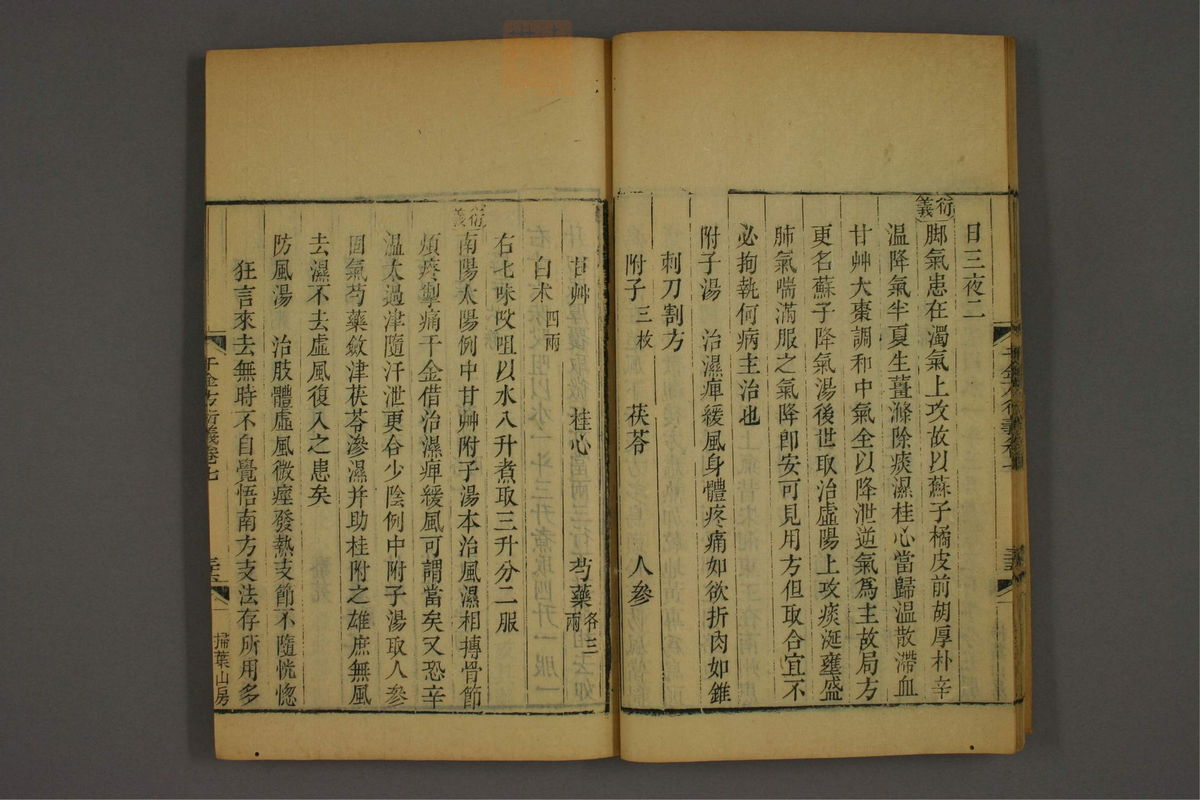 日三夜二
衍義
脚氣患在濁氣上攻故以蘇子橘皮前胡厚朴辛
温降氣半夏生薑滌除痰濕桂心當歸温散滯血
甘艸大棗調和中氣全以降泄逆氣爲主故局方
更名蘇子降氣湯後世取治虛陽上攻痰涎壅盛
肺氣喘滿服之氣降卽安可見用方但取合宜不
必拘執何病主治也
附子湯 治濕痺緩風身體疼痛如欲折肉如錐
刺刀割方
附子三枚 茯苓 人參
千金方衍義卷七
甘艸 桂心 芍藥各三兩
白术四兩
右七味㕮咀以水八升煮取三升分二服
衍義
南陽太陽例中甘艸附子湯本治風濕相搏骨節
煩疼掣痛千金借治濕痺緩風可謂當矣又恐辛
温太過津隨汗泄更合少陰例中附子湯取人參
固氣芍藥斂津茯苓滲濕并助桂附之雄庶無風
去濕不去虛風復入之患矣
防風湯 治肢體虛風微痙發熱支節不隨恍惚
狂言來去無時不自覺悟南方支法存所用多
千金方衍義卷七
掃葉山房